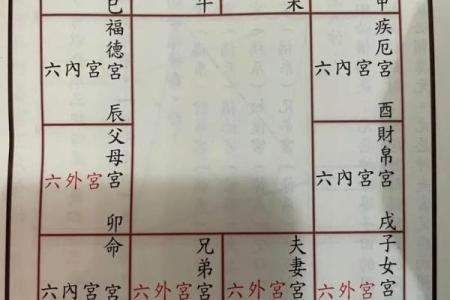 巳
午
未
申
福德宮
六內宮
疾厄宮
六內宮
辰
酉
父母宮
六外宮
財帛宮
六內宮
卯
戌
命宮
六內宮
兄弟宮
六外宮
夫妻宮
六外宮
子女宮
六外宮